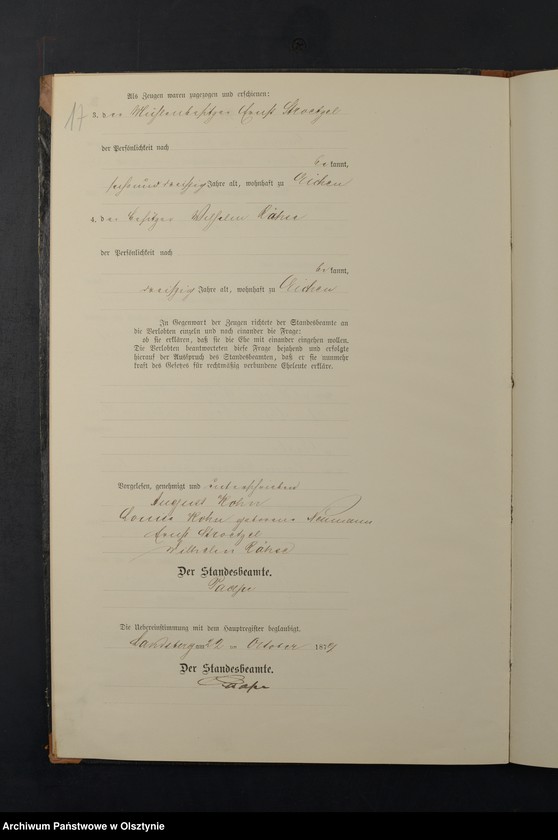 17
Als Zeugen waren zugezogen und erschienen:
3. der Mühlenbesitzer Ernst Stroetzel
der Persönlichkeit nach
be kannt,
sechsunddreißig Jahre alt, wohnhaft zu Eichen
4. der Besitzer Wilhelm Hähse
der Persönlichkeit nach
be kannt,
dreißig Jahre alt, wohnhaft zu Eichen
In Gegenwart der Zeugen richtete der Standesbeamte an
die Verlobten einzeln und nach einander die Frage:
ob sie erklären, daß sie die Ehe mit einander eingehen wollen.
Die Verlobten beantworteten diese Frage bejahend und erfolgte
hierauf der Ausspruch des Standesbeamten, daß er sie nunmehr
kraft des Gesetzes für rechtmäßig verbundene Eheleute erkläre.
Vorgelesen, genehmigt und unterschrieben
August Kohn
Louise Kohn geborene Neumann
Ernst Stroetzel
Wilhelm Hähse
Der Standesbeamte.
Die Uebereinstimmung mit dem Hauptregister beglaubigt.
Landsberg am 22 ten October 187
Der Standesbeamte.
Archiwum Państwowe w Olsztynie